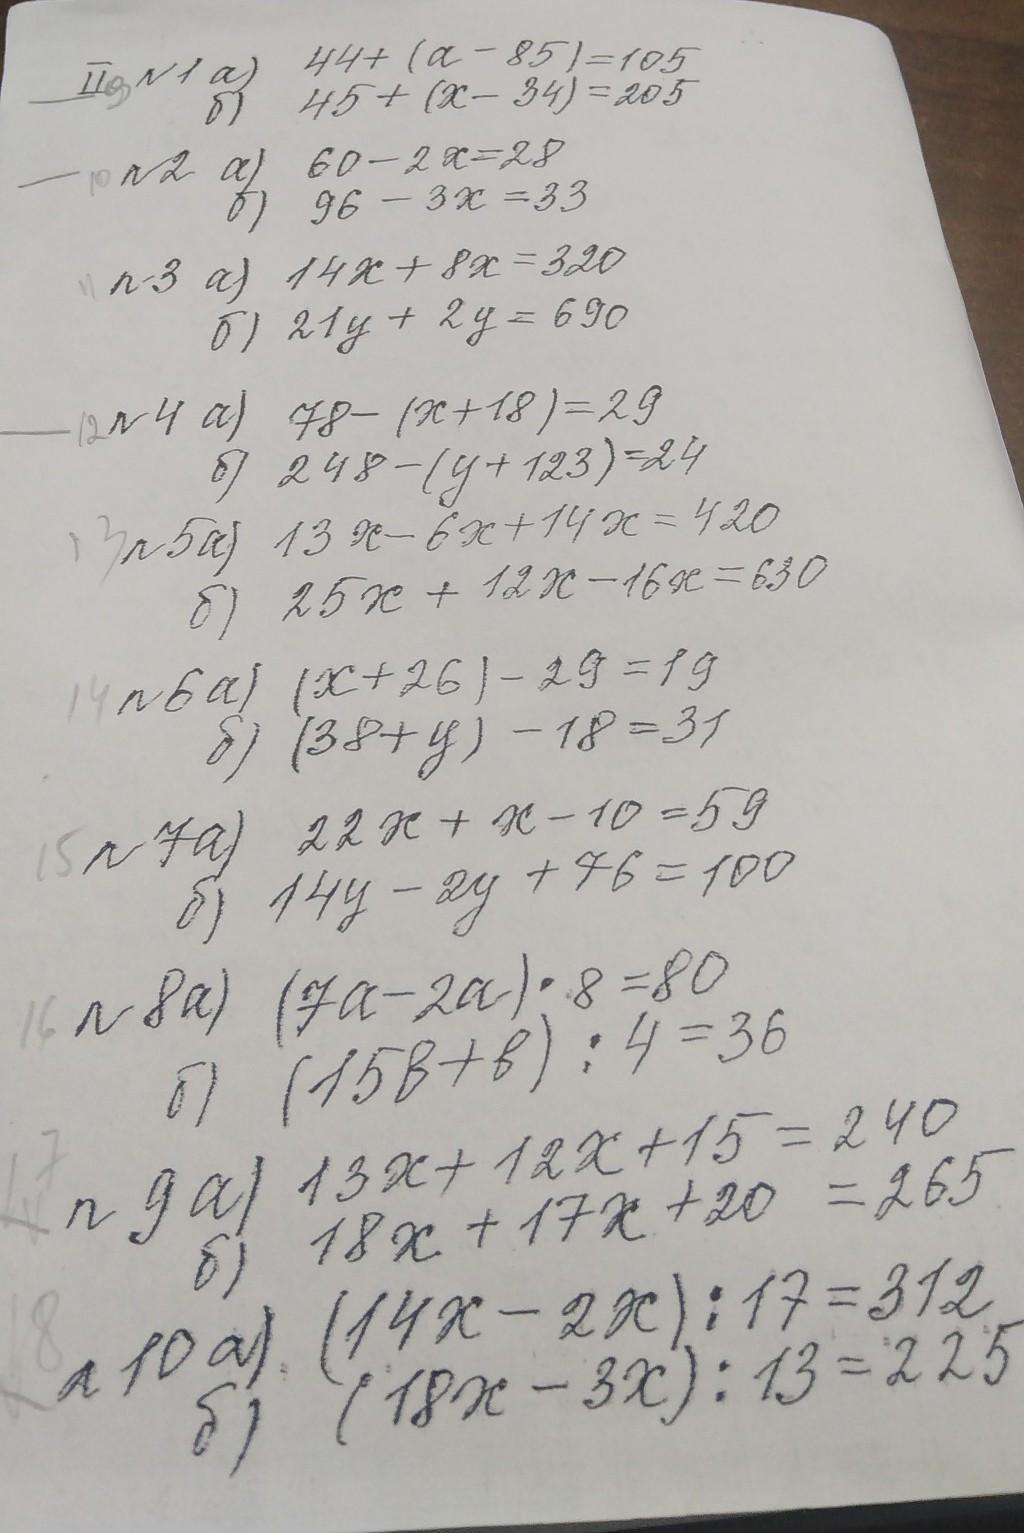 II 9 №1 а) 44+(а-85)=105
б) 45+(х-34)=205
10 №2 а) 60-2х=28
б) 96-3х=33
11 №3 а) 14х+8х=320
б) 21у+2у=690
12 №4 а) 78-(х+18)=29
б) 248-(у+123)=24
13 №5а) 13х-6х+14х=420
б) 25х+12х-16х=630
14 №6а) (х+26)-29=19
б) (38+у)-18=31
15 №7а) 22х+х-10=59
б) 14у-2у+76=100
16 №8а) (7а-2а)·8=80
б) (15в+в):4=36
17 №9а) 13х+12х+15=240
б) 18х+17х+20=265
18 №10а) (14х-2х):17=312
б) (18х-3х):13=225